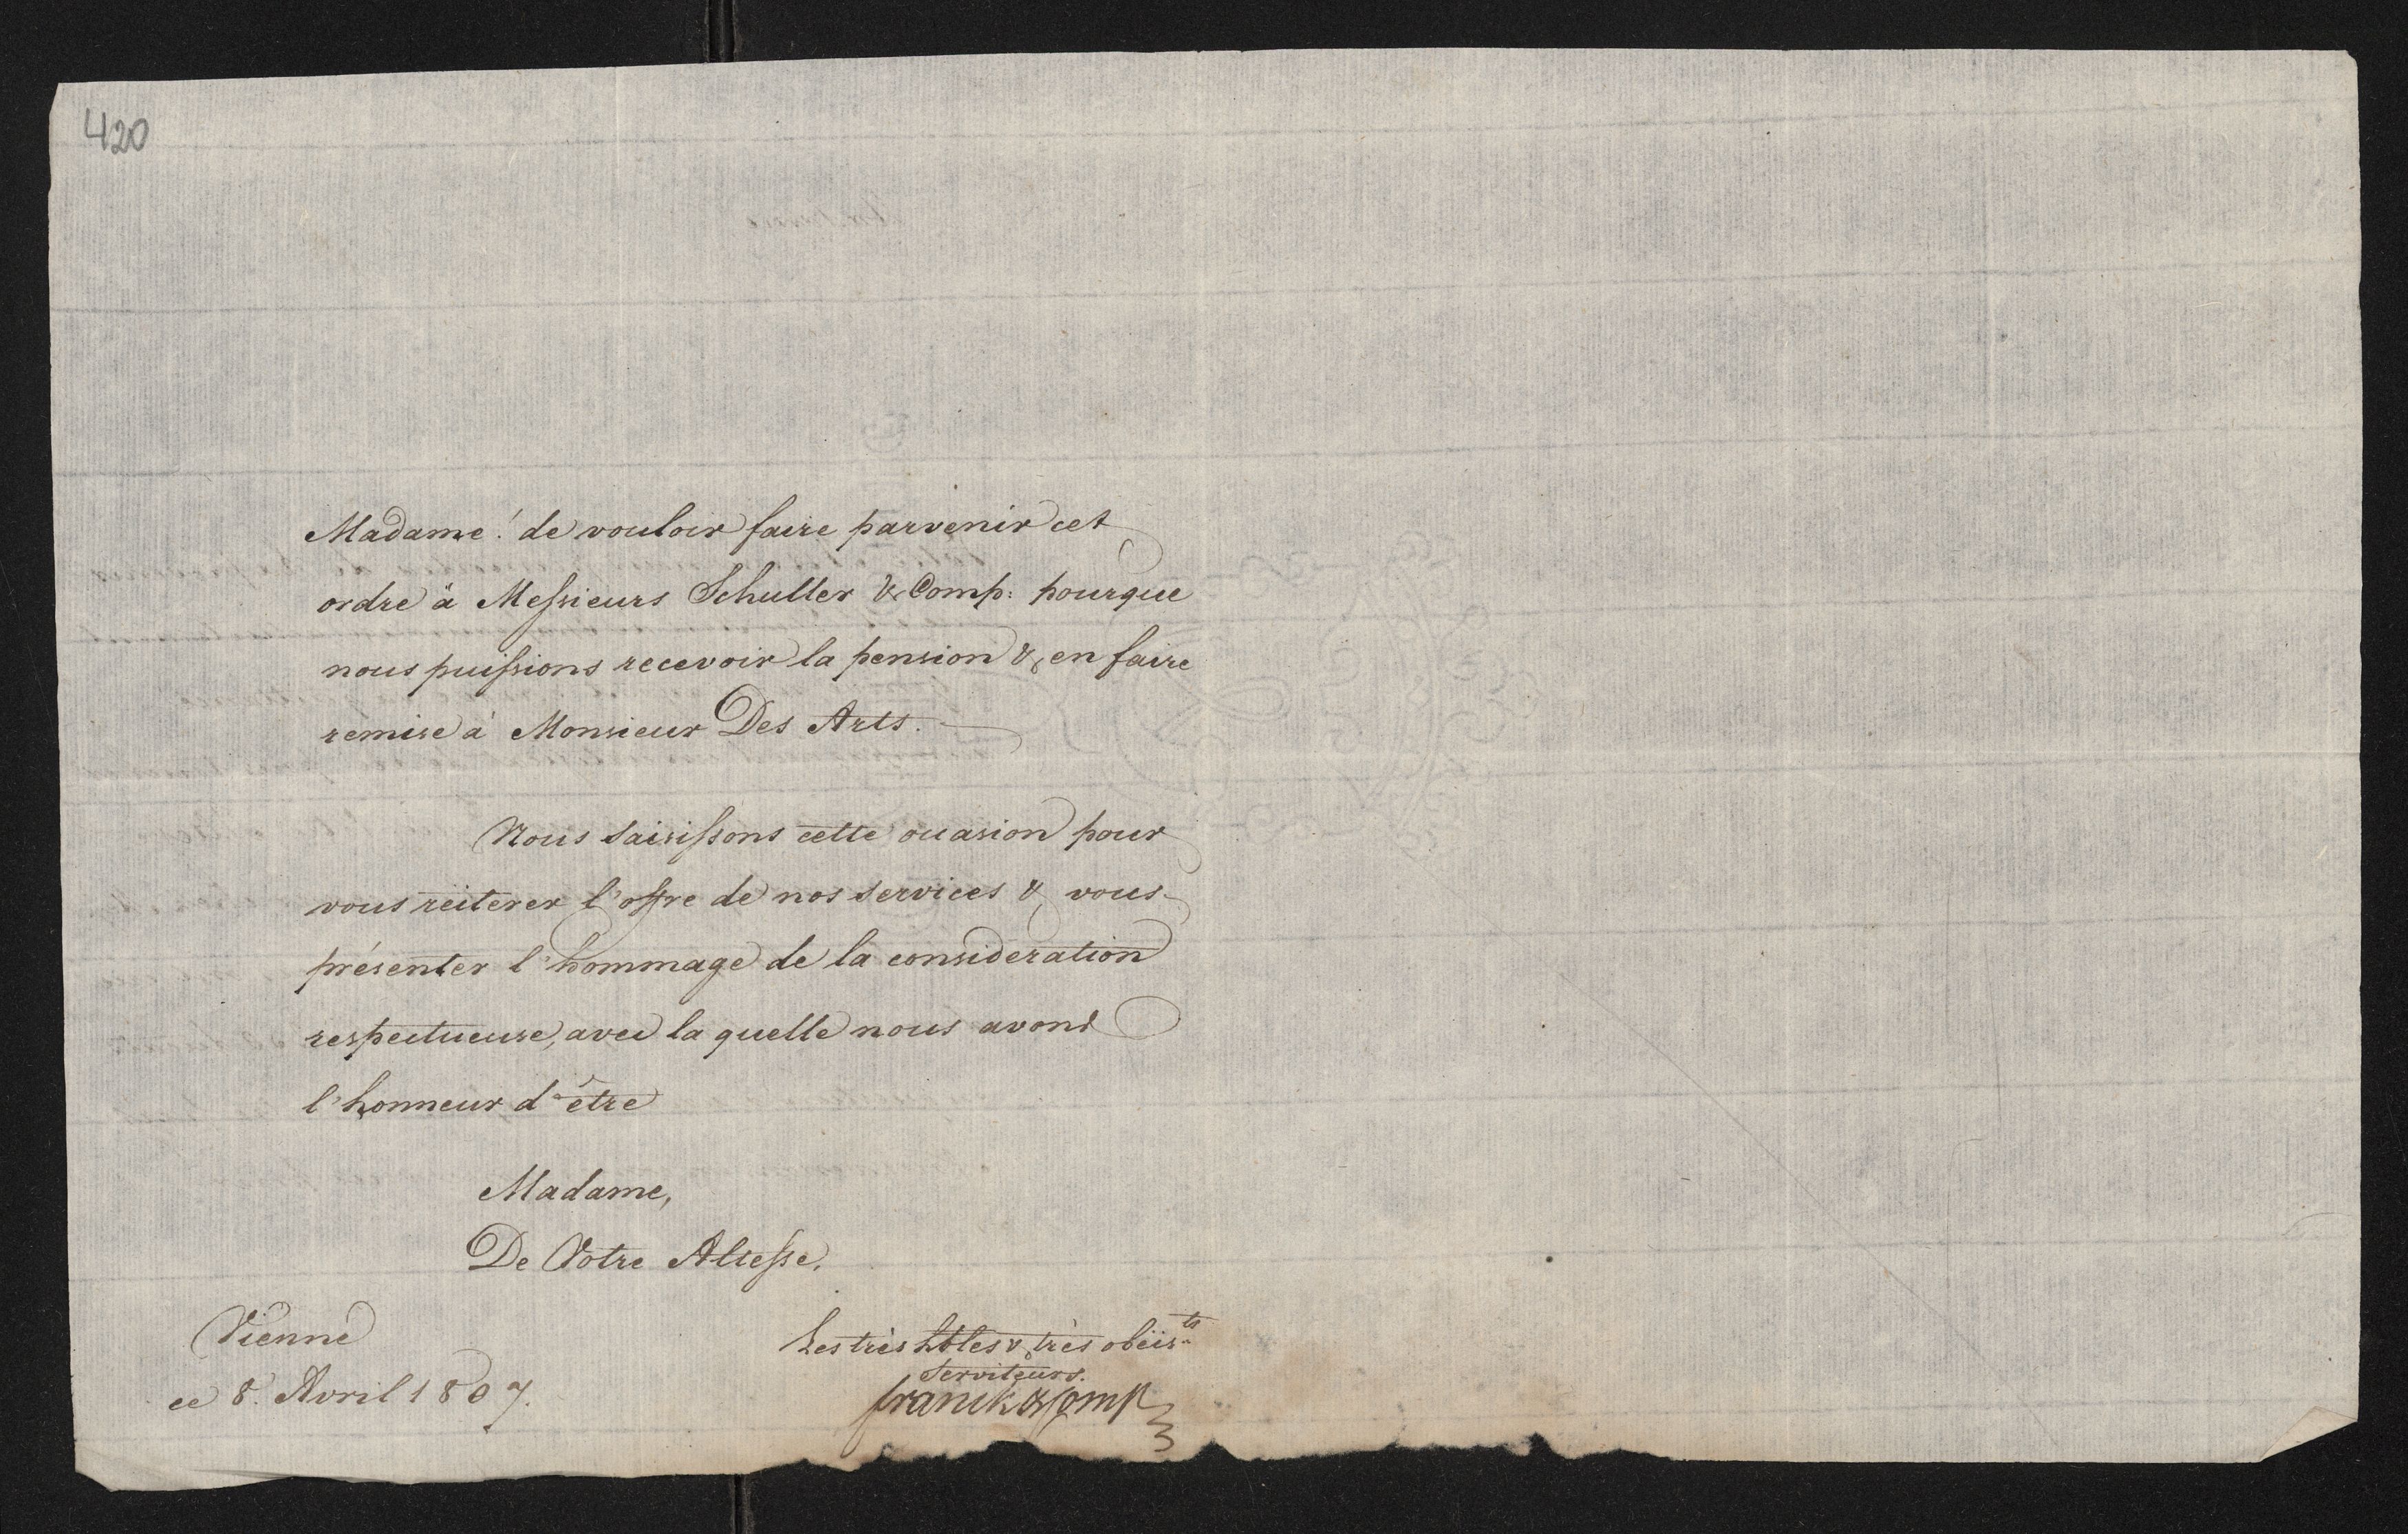 420
Madame! de vouloir faire parvenir cet
ordre à Messieurs Schuller & Comp: pourque
nous puissions recevoir la pension & en faire
remise à Monsieur Des Arts.
Nous saisissons cette occasion pour
vous réiterer l'offre de nos services & vous
présenter l'hommage de la consideration
respectueuse, avec la quelle nous avons
l'honneur d'être
Madame,
De Votre Altesse.
Vienne
ce 8. Avril 1807.
Les très hbles & très obéiss.ts
Serviteurs.
franck & Comp